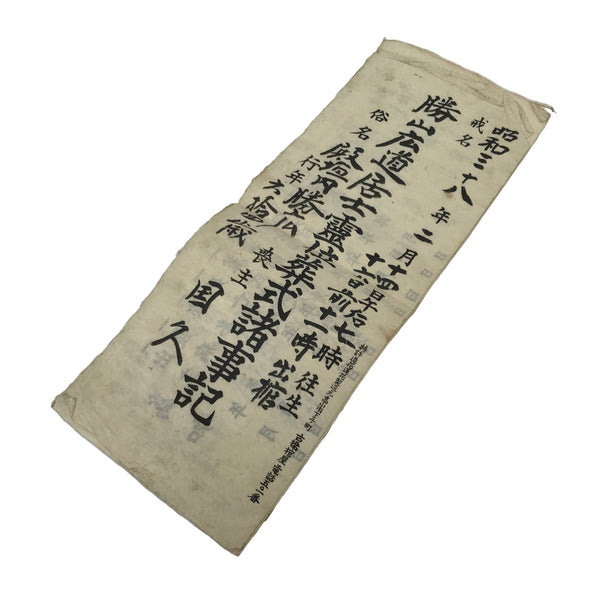 昭和三十八年二月十四日午后七時往生
十六日午前十一時出棺
戒名
勝山広道居士霊位葬式諸事記
俗名
殿垣内勝広
行年六拾歳
喪主
国久
電話五〇二番